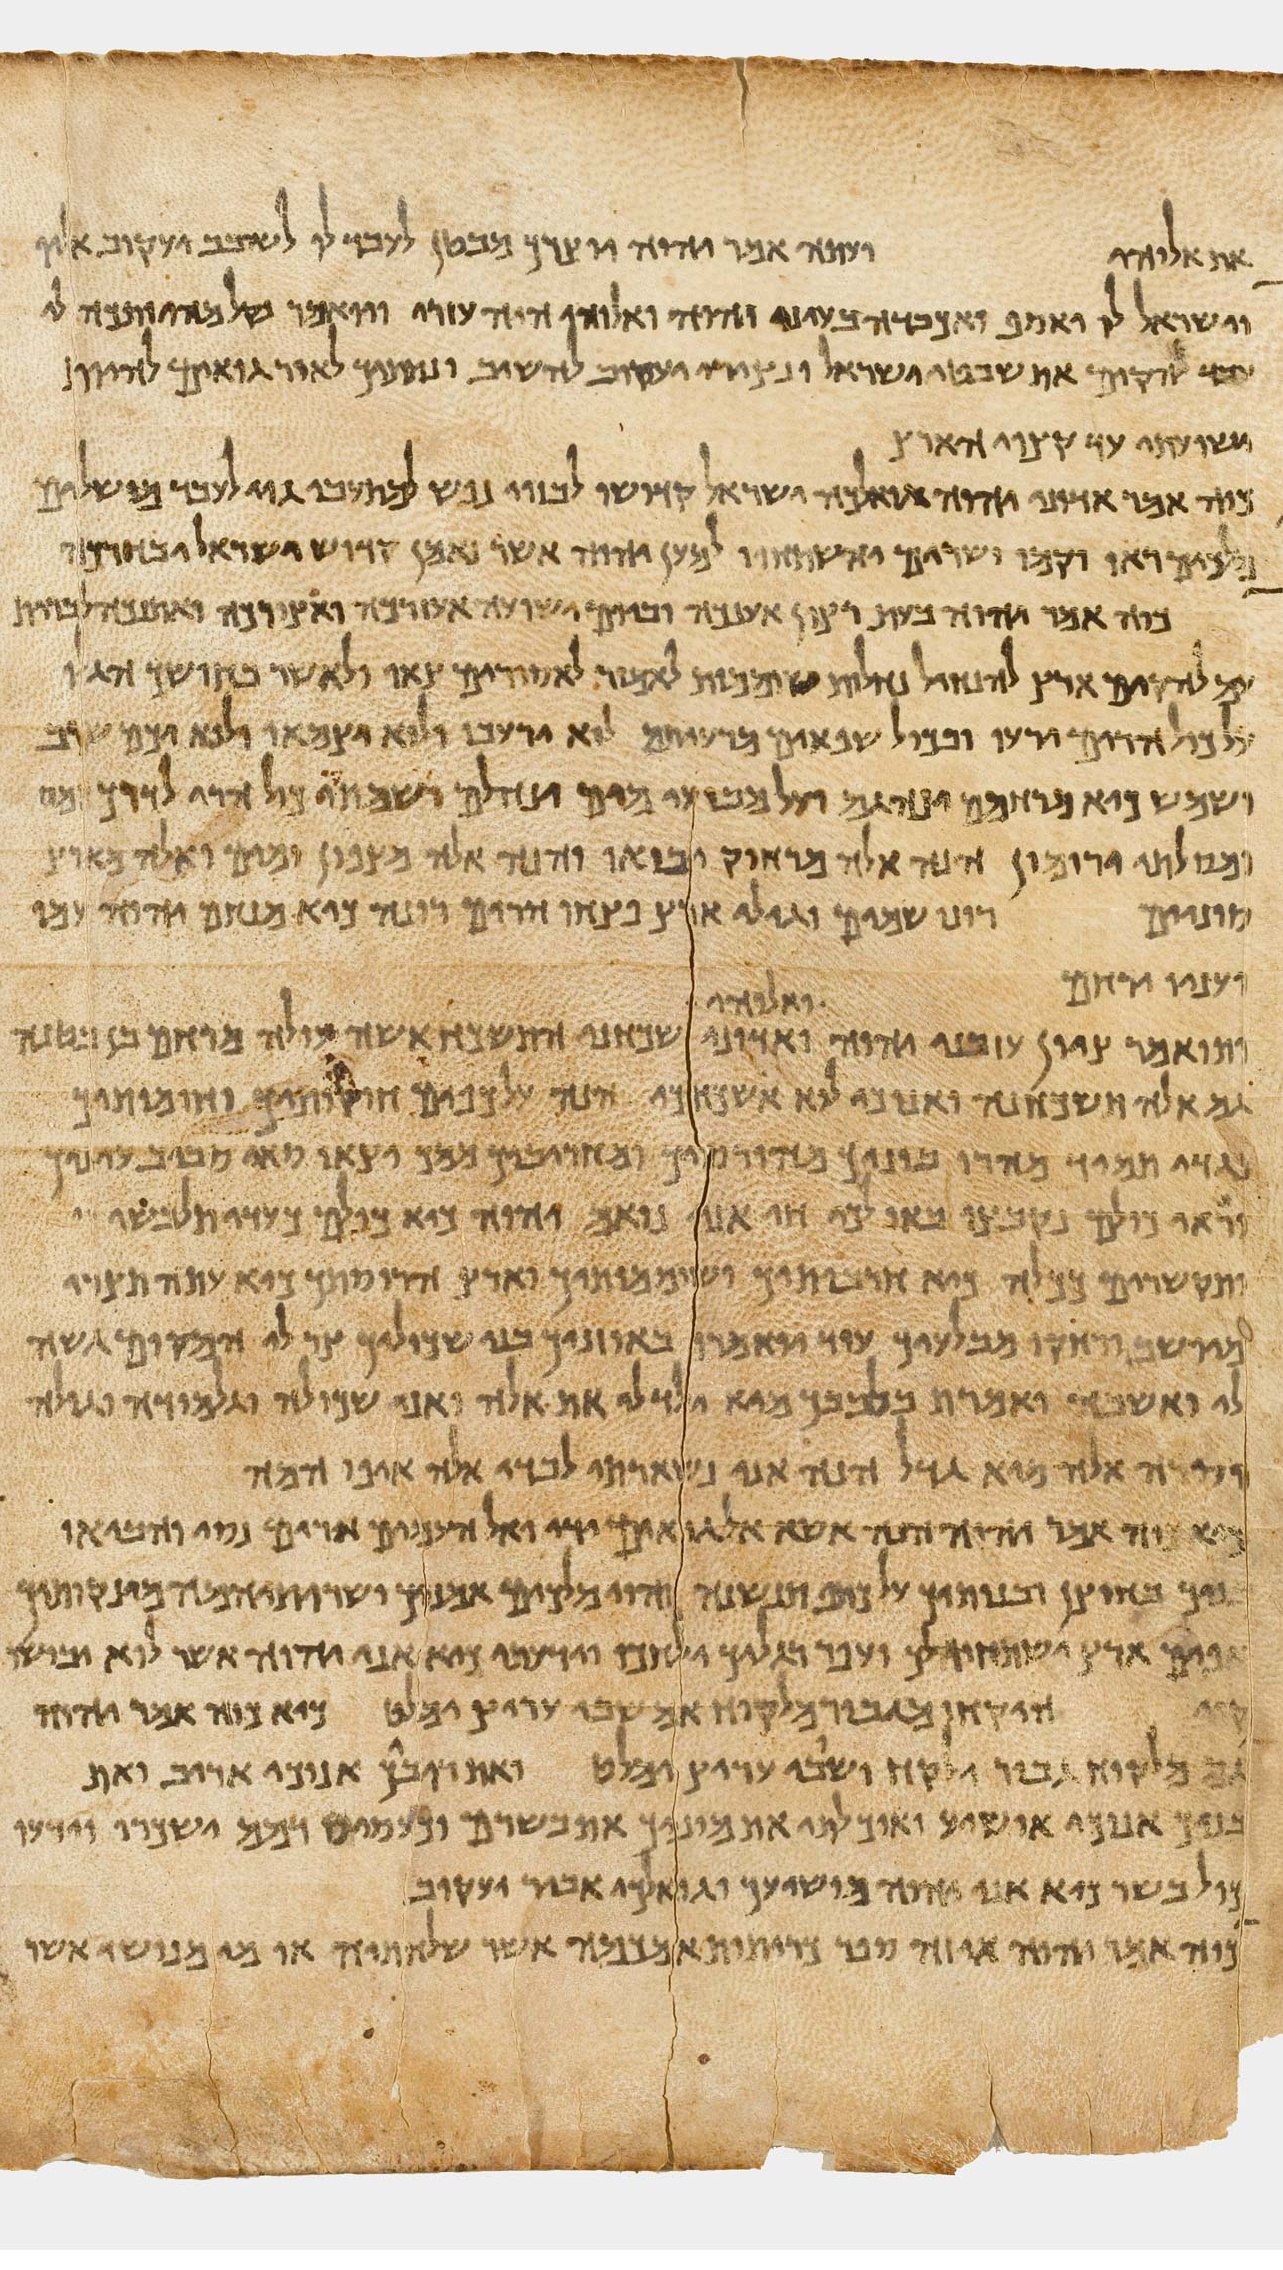 את אלוהי ועתה אמר יהוה יוצרך מבטן לעבד לו לשובב יעקוב אליו
וישראל לו יאסף ואכבדה בעיני יהוה ואלוהי היה עוזרי ויואמר נקל מהיותכה לי
עבד להקים את שבטי ישראל ונצירי יעקוב להשיב ונתתיך לאור גואים להיות
ישועתי עד קצוי הארץ
כוה אמר אדוני יהוה גואלכה ישראל קדושו לבזוי נפש למתעבי גוי לעבד מושלים
מלכים ראו וקמו ושרים והשתחוו למען יהוה אשר נאמן קדוש ישראל יבחרכה
כוה אמר יהוה בעת רצון אענכה וביום ישועה אעזרכה ואצורכה ואתנכה לברית
עם להקים ארץ להנחיל נחלות שוממות לאמור לאסורים צאו ולאשר בחושך הגלו
על כול הרים ירעו ובכול שפאים מרעיתם לוא ירעבו ולוא יצמאו ולוא יכם שרב
ושמש כיא מרחמם ינהגם ועל מבועי מים ינהלם ושמתי כול הרי לדרך
ומסלתי ירומון הנה אלה מרחוק יבואו והנה אלה מצפון ומים ואלה מארץ
סוניים רונו שמים וגילי ארץ פצחו הרים רונה כיא מנחם יהוה עמו
ועניו ירחם
ואלוהי
ותואמר ציון עזבני יהוה ואדוני שכחני התשכח אשה עולה מרחם בן בטנה
גם אלה תשכחנה ואנוכי לוא אשכחכי הנה על כפים חקותיך וחומותיך
נגדי תמיד מהרו בוניך מהורסיך ומחריביך ממך יצאו שאי סביב עיניך
וראי כולם נקבצו באו לכי חי אני נואם יהוה כיא כולם כעדי תלבשי
ותקשרים ככלה כיא חרבותיך ושוממותיך וארץ הריסתך כיא עתה תצרי
מיושב ורחקו מבלעיך עוד יאמרו באוזניך בני שכוליך צר לי המקום גשה
לי ואשבה ואמרת בלבבך מיא ילד לי את אלה ואני שכולה וגלמודה וגולה
וסרה אלה מיא גדל הנה אני נשארתי לבדי אלה איפו המה
כיא כוה אמר יהוה הנה אשא אל גואים ידי ואל העמים ארים נסי והביאו
בניך בחוצן ובנותיך על כתף תנשנה והיו מלכים אמניך ושרותיהמה מינקותיך
אפים ארץ ישתחוו לך ועפר רגליך ילחכו וידעתי כיא אני יהוה אשר לוא יבושו
קוי היקחו מגבור מלקוח אם שבי עריץ ימלט כיא כוה אמר יהוה
גם מלקוח גבור ילקח ושבי עריץ ימלט ואת ריבך אנוכי אריב ואת
בניך אנוכי אושיע ואוכלתי את מוניך את בשרם וכעסיס דמם ישכרו וידעו
כול בשר כיא אני יהוה מושיעך וגואלך אביר יעקוב
כוה אמר יהוה אי זה ספר כריתות אמכמה אשר שלחתיה או מי מנושי אשר